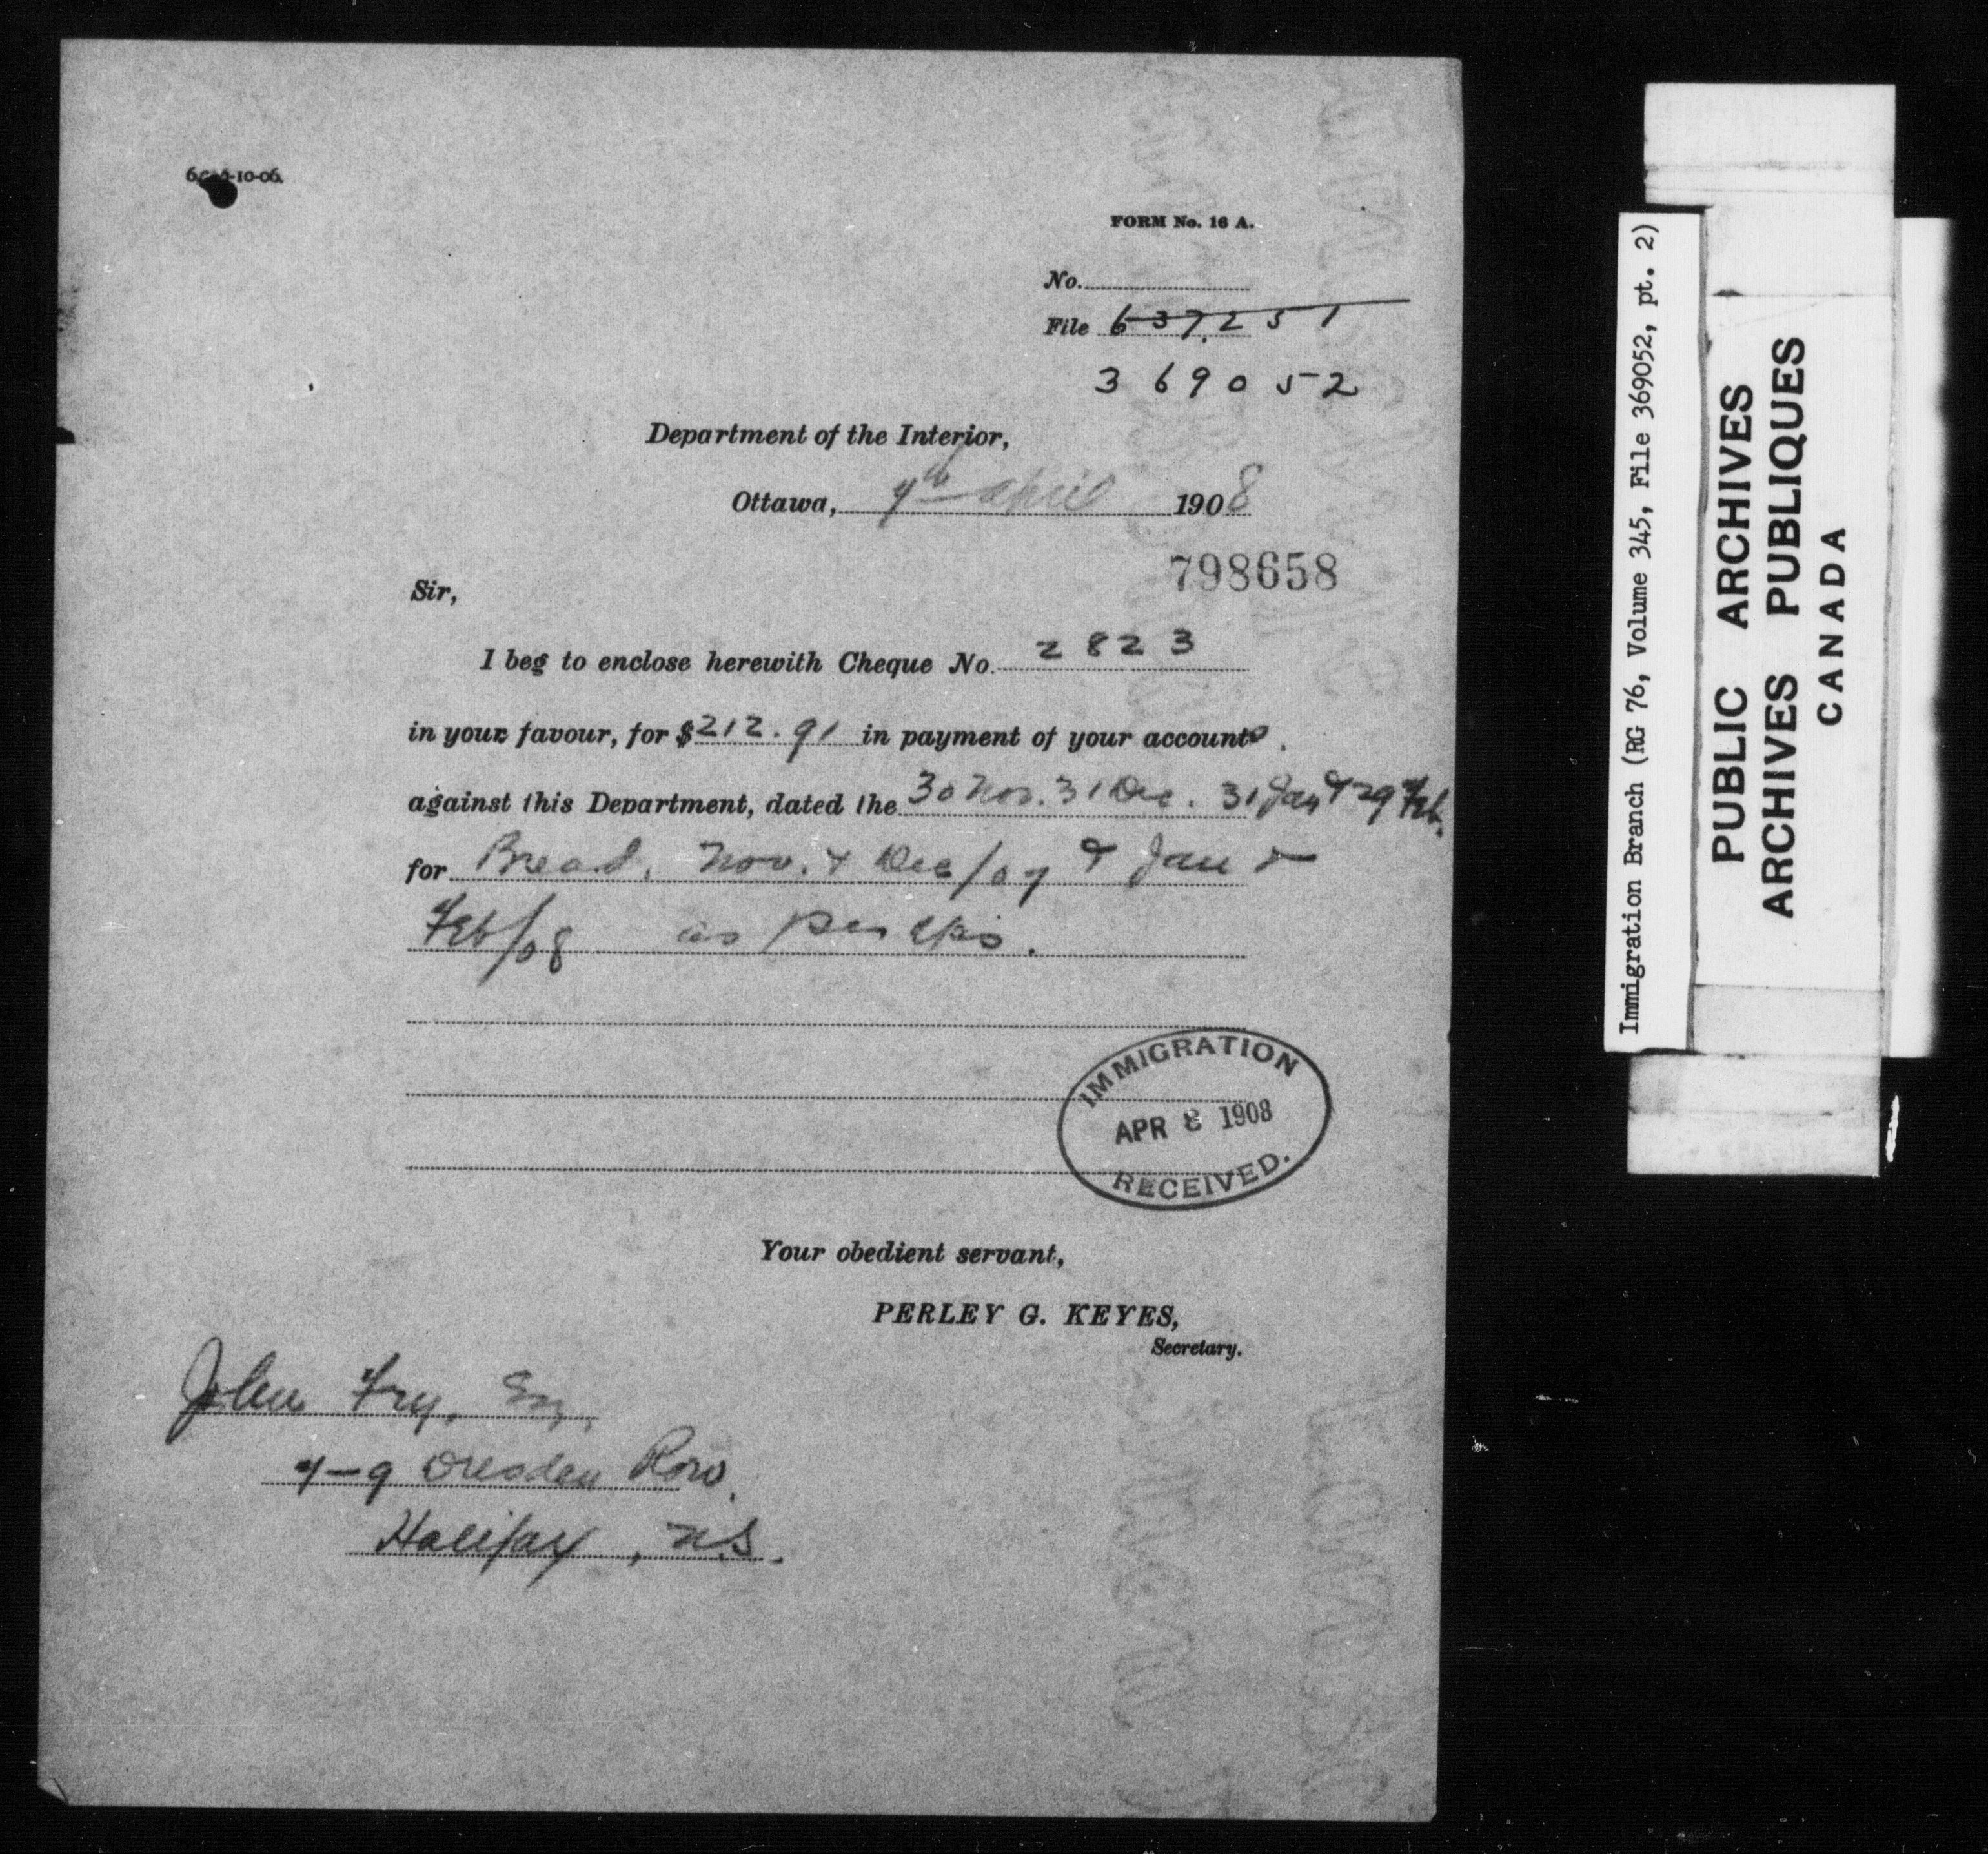 FORM No. 16 A.
No.
File 637,251
369052
Department of the Interior,
Ottawa, 7th April 1908
798658
Sir,
I beg to enclose herewith Cheque No. 2823
in your favour, for $212.91 in payment of your accounts.
against this Department, dated the 30 Nov. 31 Dec. 31 Jan & 29 Feb.
for Bread, Nov. & Dec/07 & Jan &
Feb/08 as per
IMMIGRATION
APR 8 1908
RECEIVED.
Your obedient servant,
PERLEY G. KEYES,
Secretary.
John Fry, Esq,
7-9 Dresden Row.
Halifax, N.S.
Immigration Branch (RG 76, Volume 345, File 369052, pt. 2)
PUBLIC ARCHIVES
ARCHIVES PUBLIQUES
CANADA